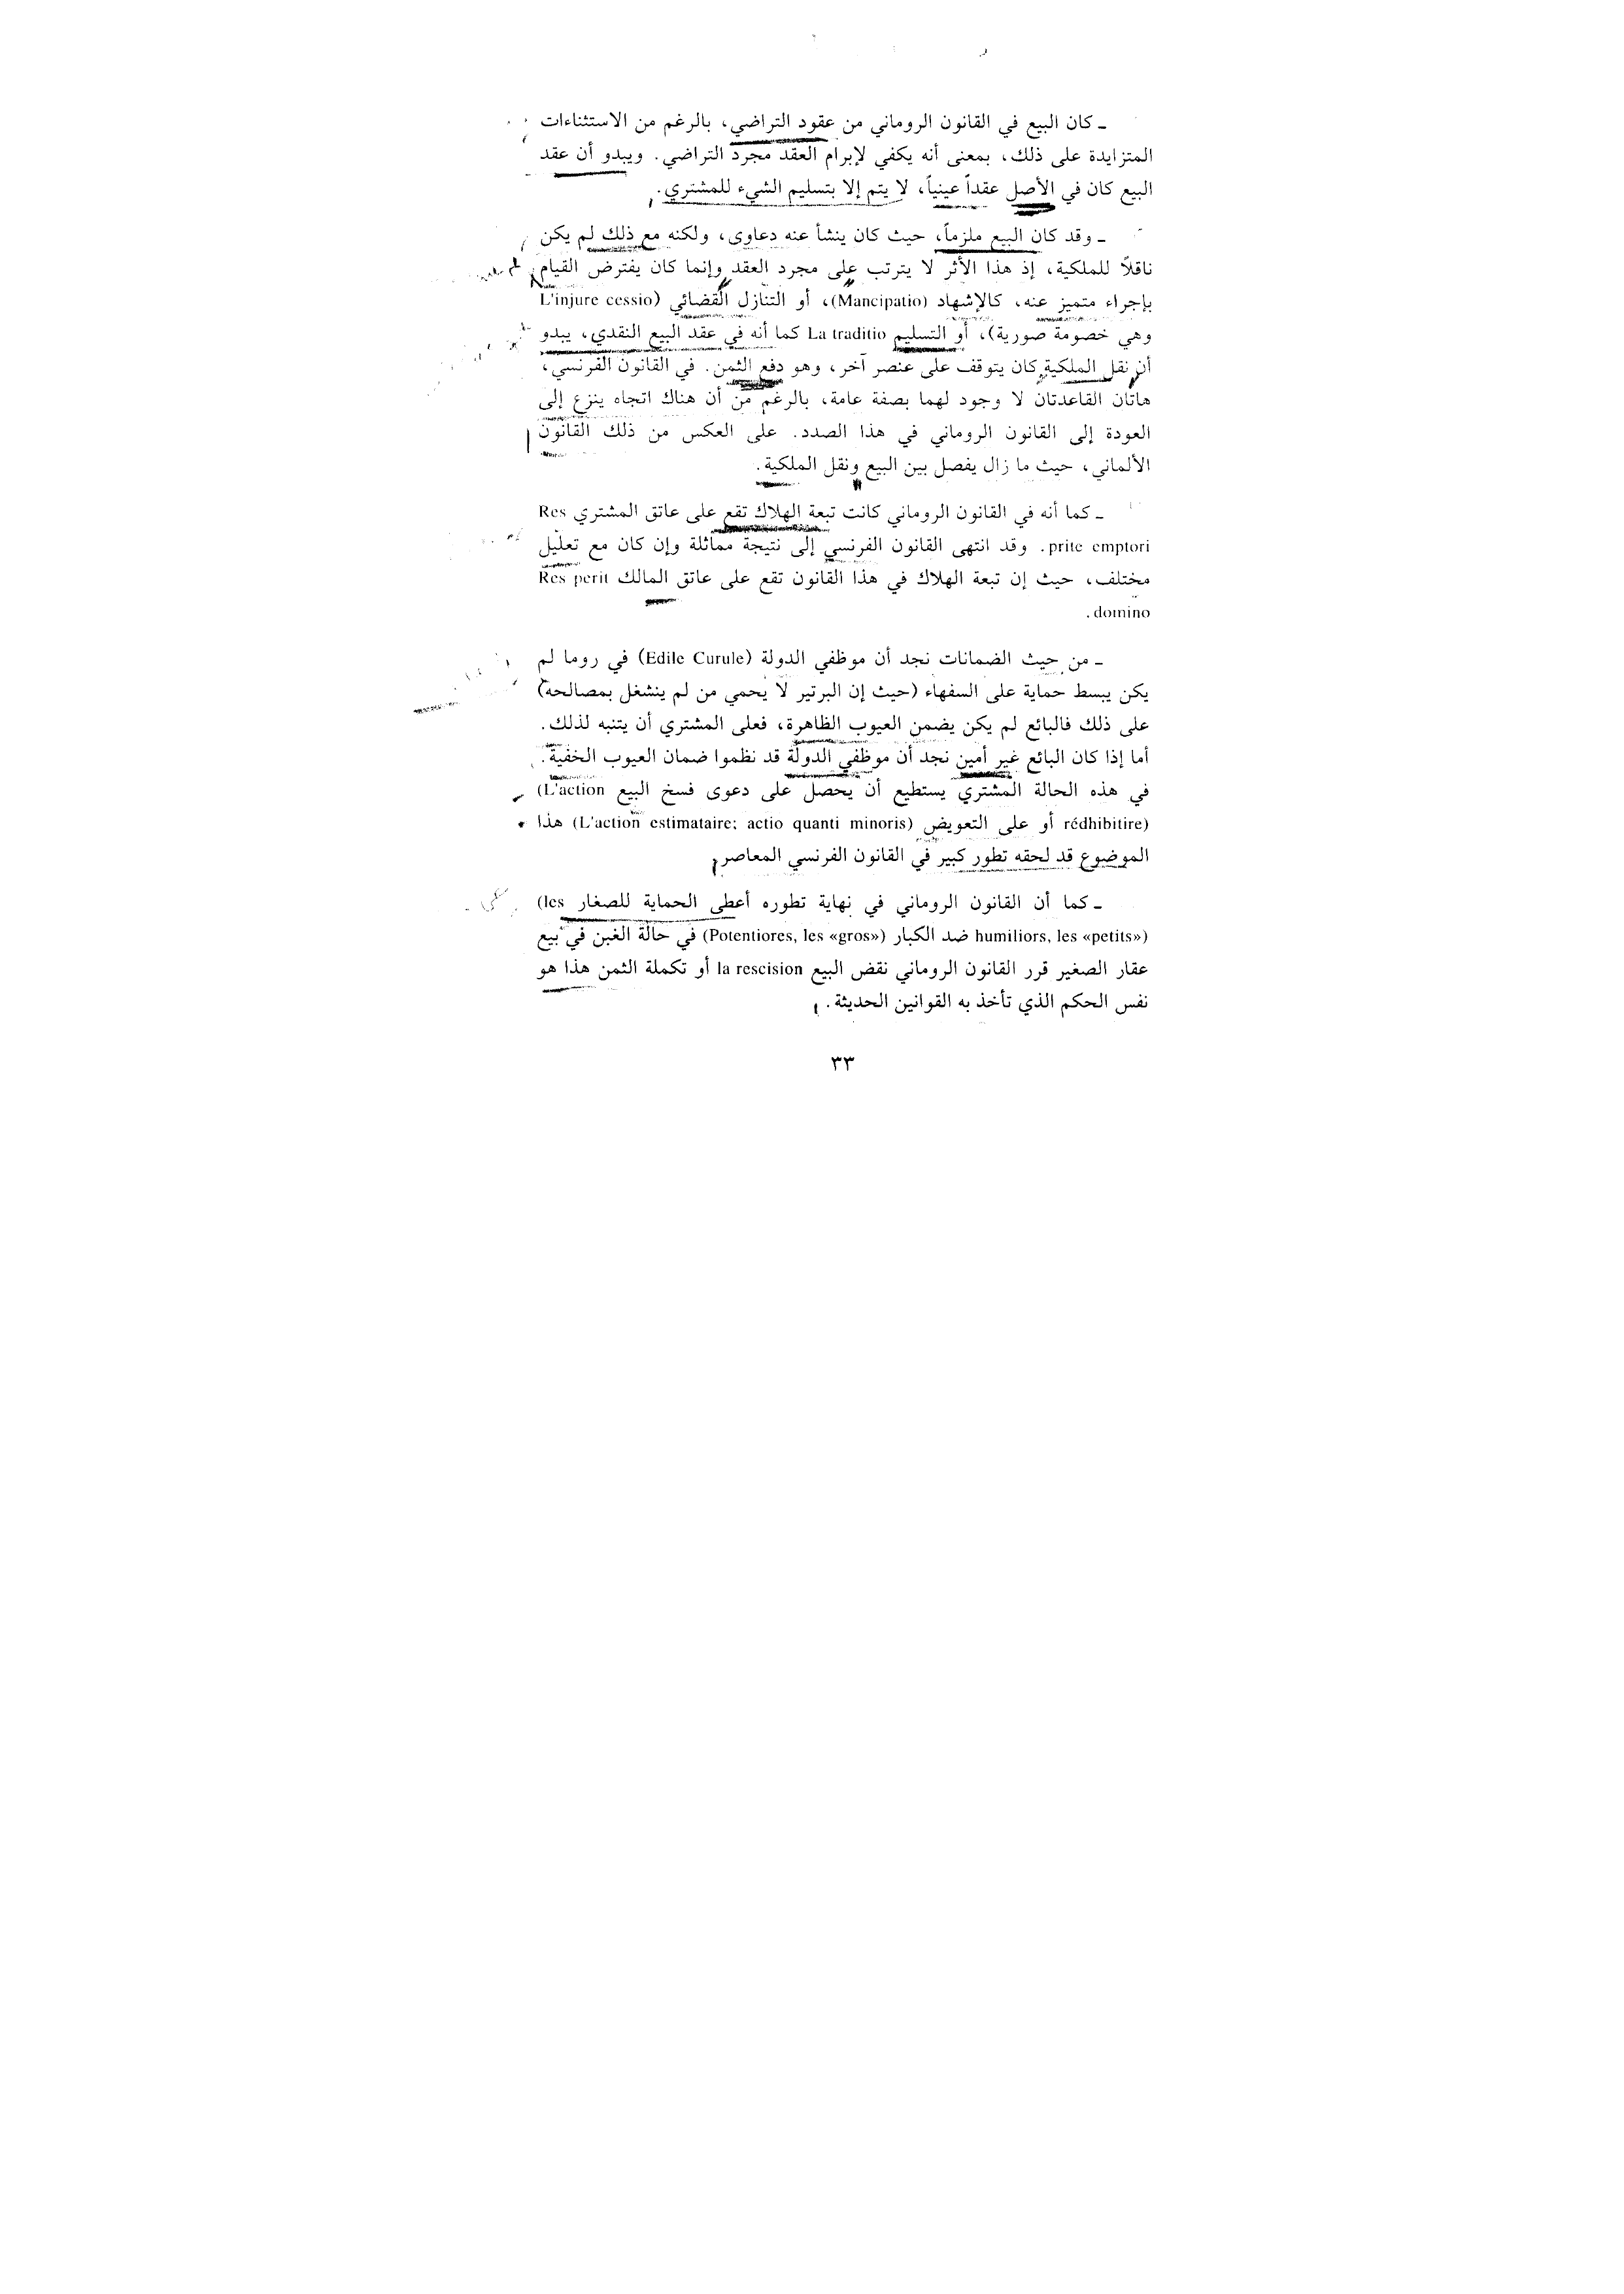 ـ كان البيع في القانون الروماني من عقود التراضي، بالرغم من الاستثناءات
المتزايدة على ذلك، بمعنى أنه يكفي لإبرام العقد مجرد التراضي. ويبدو أن عقد
البيع كان في الأصل عقداً عينياً، لا يتم إلا بتسليم الشيء للمشتري.
ـ وقد كان البيع ملزماً، حيث كان ينشأ عنه دعاوى، ولكنه مع ذلك لم يكن
ناقلاً للملكية، إذ هذا الأثر لا يترتب على مجرد العقد وإنما كان يفترض القيام
بإجراء متميز عنه، كالإشهاد (Mancipatio)، أو التنازل القضائي (L'injure cessio
وهي خصومة صورية)، أو التسليم La traditio كما أنه في عقد البيع النقدي، يبدو
أن نقل الملكية كان يتوقف على عنصر آخر، وهو دفع الثمن. في القانون الفرنسي،
هاتان القاعدتان لا وجود لهما بصفة عامة، بالرغم من أن هناك اتجاه ينزع إلى
العودة إلى القانون الروماني في هذا الصدد. على العكس من ذلك القانون
الألماني، حيث ما زال يفصل بين البيع ونقل الملكية.
ـ كما أنه في القانون الروماني كانت تبعة الهلاك تقع على عاتق المشتري Res
prite emptori. وقد انتهى القانون الفرنسي إلى نتيجة مماثلة وإن كان مع تعليل
مختلف، حيث إن تبعة الهلاك في هذا القانون تقع على عاتق المالك Res perit
domino.
ـ من حيث الضمانات نجد أن موظفي الدولة (Edile Curule) في روما لم
يكن يبسط حماية على السفهاء (حيث إن البرتير لا يحمي من لم ينشغل بمصالحه)
على ذلك فالبائع لم يكن يضمن العيوب الظاهرة، فعلى المشتري أن يتنبه لذلك.
أما إذا كان البائع غير أمين نجد أن موظفي الدولة قد نظموا ضمان العيوب الخفية.
في هذه الحالة المشتري يستطيع أن يحصل على دعوى فسخ البيع (L'action
rédhibitire) أو على التعويض (L'action estimataire; actio quanti minoris) هذا
الموضوع قد لحقه تطور كبير في القانون الفرنسي المعاصر
ـ كما أن القانون الروماني في نهاية تطوره أعطى الحماية للصغار (les
humiliors, les «petits») ضد الكبار (Potentiores, les «gros») في حالة الغبن في بيع
عقار الصغير قرر القانون الروماني نقض البيع la rescision أو تكملة الثمن هذا هو
نفس الحكم الذي تأخذ به القوانين الحديثة.
٣٣